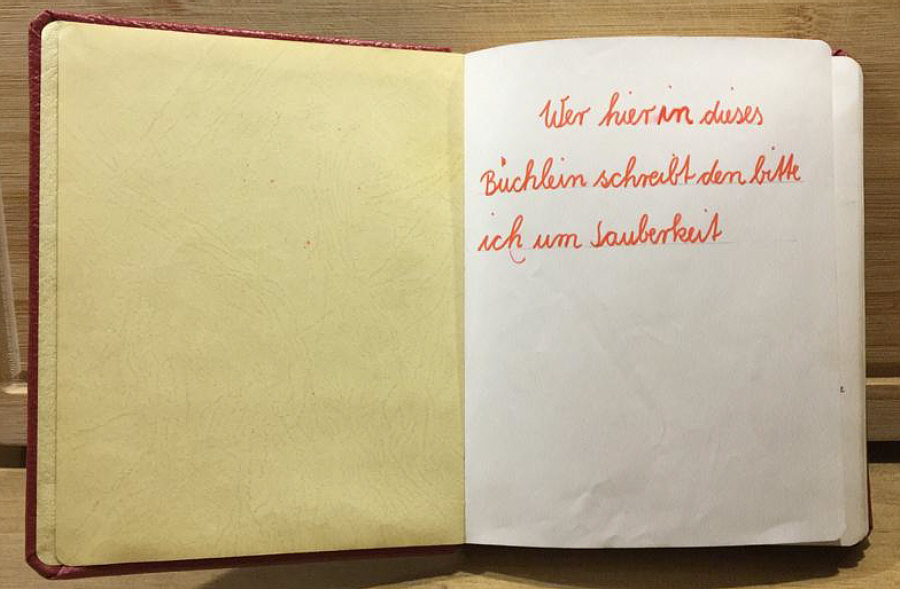 Wer hier in dieses
Büchlein schreibt den bitte
ich um Sauberkeit